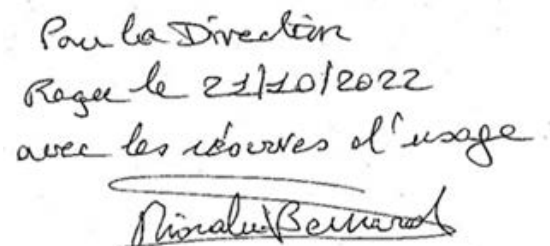 Pour la Direction
Reçu le 21/10/2022
avec les réserves d'usage
Bernard